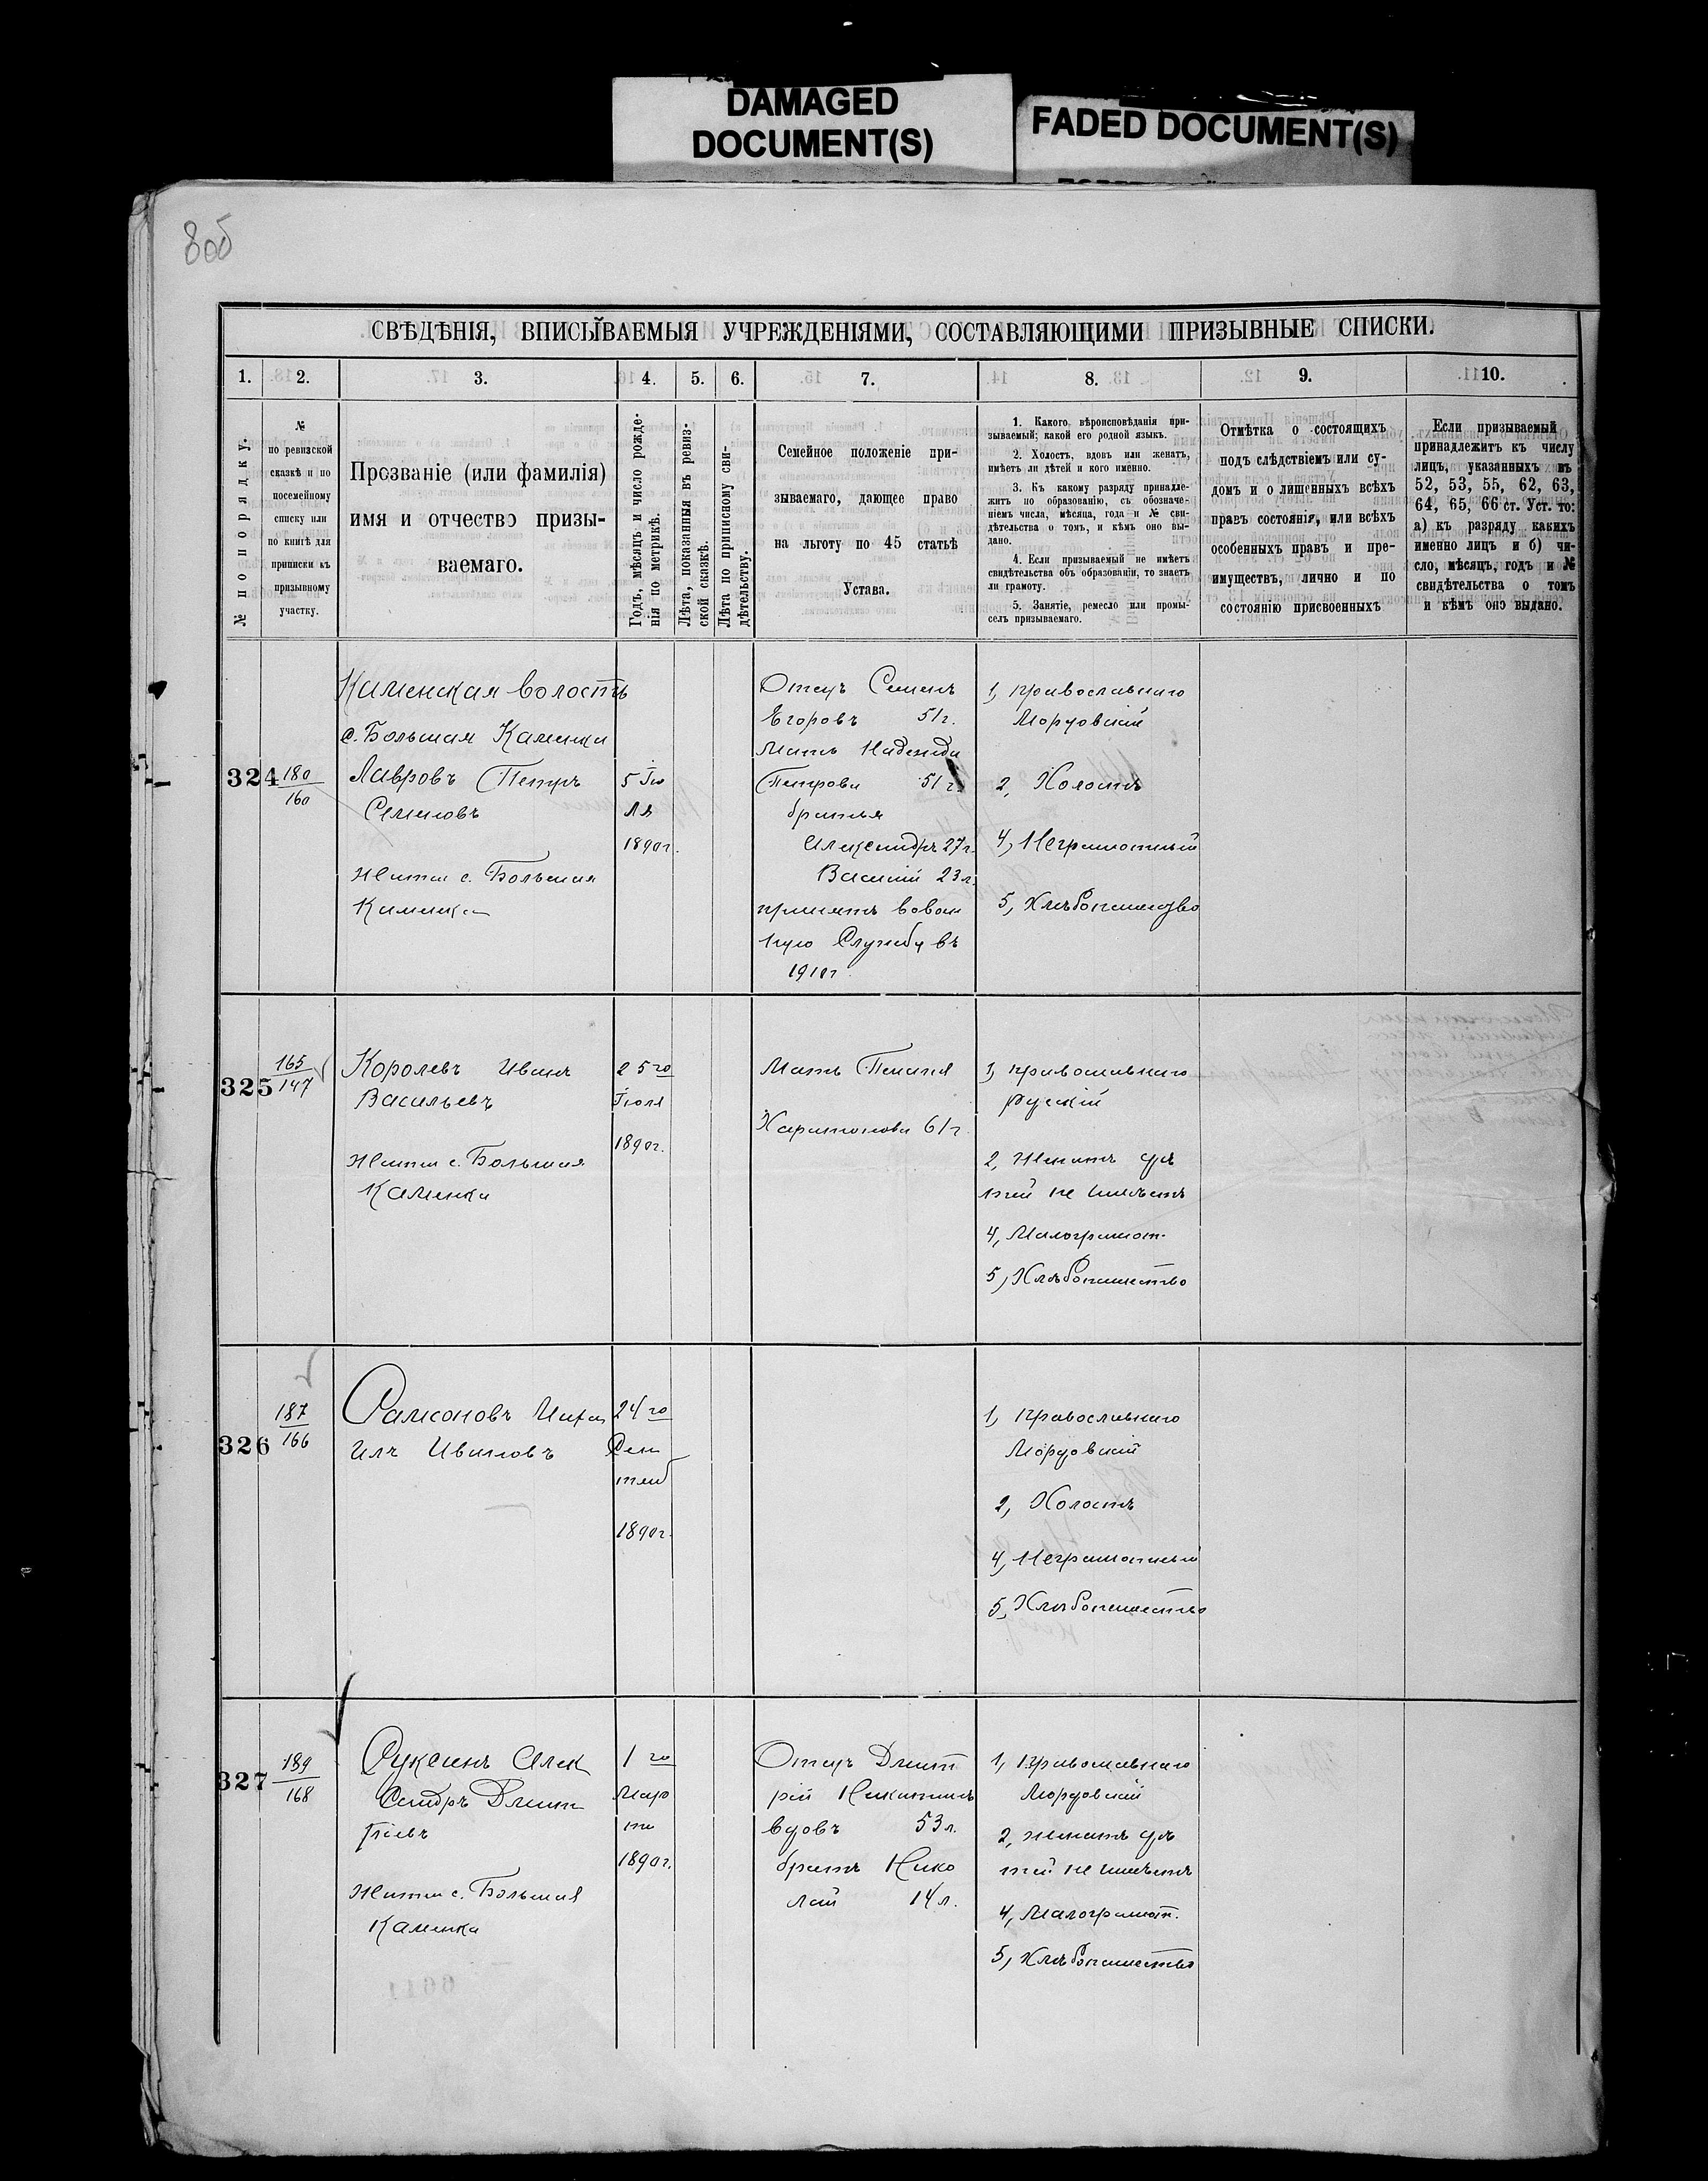 DAMAGED
DOCUMENT(S)
FADED DOCUMENT(S)
80б
СВѢДѢНІЯ, ВПИСЫВАЕМЫЯ УЧРЕЖДЕНІЯМИ, СОСТАВЛЯЮЩИМИ ПРИЗЫВНЫЕ СПИСКИ.
1. 2. 3. 4. 5. 6. 7. 8. 9. 10.
№ по порядку.
№
по ревизской
сказкѣ и по
посемейному
списку или
по книгѣ для
приписки къ
призывному
участку.
Прозваніе (или фамилія)
имя и отчество призы-
ваемаго.
Годъ, мѣсяцъ и число рожде-
нія по метрикѣ.
Лѣта, показанныя въ ревиз-
ской сказкѣ.
Лѣта по приписному сви-
дѣтельству.
Семейное положеніе при-
зываемаго, дающее право
на льготу по 45 статьѣ
Устава.
1. Какого вѣроисповѣданія при-
зываемый; какой его родной языкъ.
2. Холостъ, вдовъ или женатъ,
имѣетъ ли дѣтей и кого именно.
3. Къ какому разряду принадле-
житъ по образованію, съ обозначе-
ніемъ числа, мѣсяца, года и № сви-
дѣтельства о томъ, и кѣмъ оно вы-
дано.
4. Если призываемый не имѣетъ
свидѣтельства объ образованіи, то знаетъ
ли грамоту.
5. Занятіе, ремесло или промы-
селъ призываемаго.
Отмѣтка о состоящихъ
подъ слѣдствіемъ или су-
домъ и о лишенныхъ всѣхъ
правъ состоянія, или всѣхъ
особенныхъ правъ и пре-
имуществъ, лично и по
состоянію присвоенныхъ
Если призываемый
принадлежитъ къ числу
лицъ, указанныхъ въ
52, 53, 55, 62, 63,
64, 65, 66 ст. Уст. то:
а) къ разряду какихъ
именно лицъ и б) чи-
сло, мѣсяцъ, годъ и №
свидѣтельства о томъ
и кѣмъ оно выдано.
324
180
160
Каменская волость
с. Большая Каменка
Лавровъ Петръ
Семеновъ
Жит. с. Большая
Каменка
5 Ію
ля
1890г.
Отецъ Семенъ
Егоровъ 51г.
Мать Надежда
Петрова 51г.
братья
Александръ 27л.
Василій 23л.
принятъ в воен
ную Службу въ
1910г.
1, православнаго
Мордовскій
2, Холостъ
4, Неграмотный
5, Хлѣбопашество
325
165
147
Королевъ Иванъ
Васильевъ
Жит. с. Большая
Каменка
25го
Іюля
1890г.
Мать
Харитонова 61г.
1, православнаго
русскій
2, Женатъ дѣ
тей не имѣетъ
4, Малограмот.
5, Хлѣбопашество
326
187
166
Самсоновъ Миха
илъ Ивановъ
24го
Сен
тяб
1890г.
1, православнаго
Мордовскій
2, Холостъ
4, Неграмотный
5, Хлѣбопашество
327
189
168
Суксинъ Алек
сандръ Дмит
ріевъ
Жит. с. Большая
Каменка
1го
Мар
та
1890г.
Отецъ Дмит
рій Никитинъ
вдовъ 53л.
братъ Нико
лай 14л.
1, православнаго
Мордовскій
2, женатъ дѣ
тей не имѣетъ
4, Малограмот.
5, Хлѣбопашество